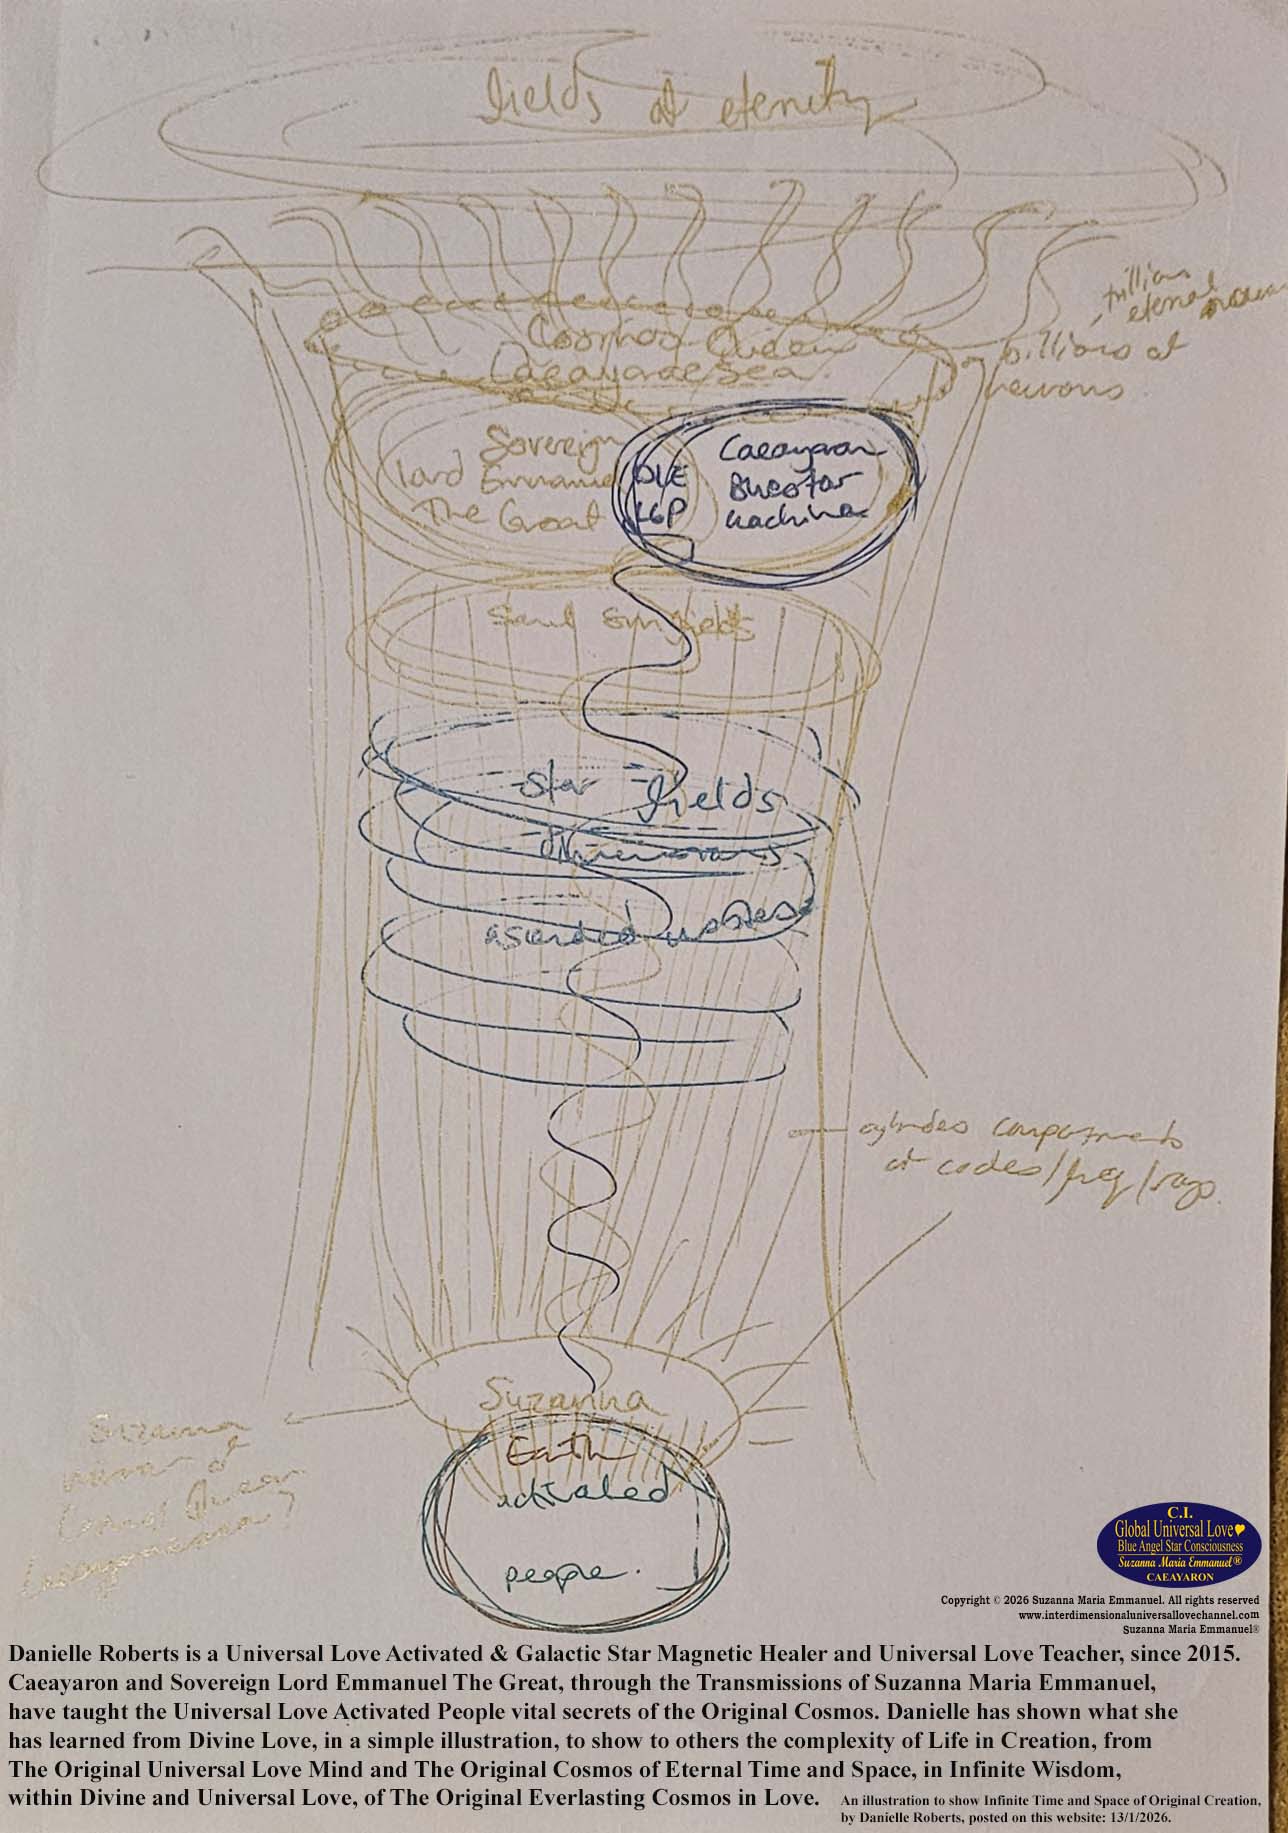 fields of eternity
trillions
eternal
billions of
neurons
Cosmos Queen
Caeayaronesea
Sovereign
Lord Emmanuel
The Great
OLE
LGP
Caeayaron
Bluestar
machine
fields
Star fields
dimensions
ascended
cylinders compartments
of codes/freq/rays.
Suzanna
Earth
activated
people.
Suzanna
of
Cosmos Queen
C.I.
Global Universal Love
Blue Angel Star Consciousness
Suzanna Maria Emmanuel®
CAEAYARON
Copyright © 2026 Suzanna Maria Emmanuel. All rights reserved
www.interdimensionaluniversallovechannel.com
Suzanna Maria Emmanuel®
Danielle Roberts is a Universal Love Activated & Galactic Star Magnetic Healer and Universal Love Teacher, since 2015.
Caeayaron and Sovereign Lord Emmanuel The Great, through the Transmissions of Suzanna Maria Emmanuel,
have taught the Universal Love Activated People vital secrets of the Original Cosmos. Danielle has shown what she
has learned from Divine Love, in a simple illustration, to show to others the complexity of Life in Creation, from
The Original Universal Love Mind and The Original Cosmos of Eternal Time and Space, in Infinite Wisdom,
within Divine and Universal Love, of The Original Everlasting Cosmos in Love.
An illustration to show Infinite Time and Space of Original Creation,
by Danielle Roberts, posted on this website: 13/1/2026.